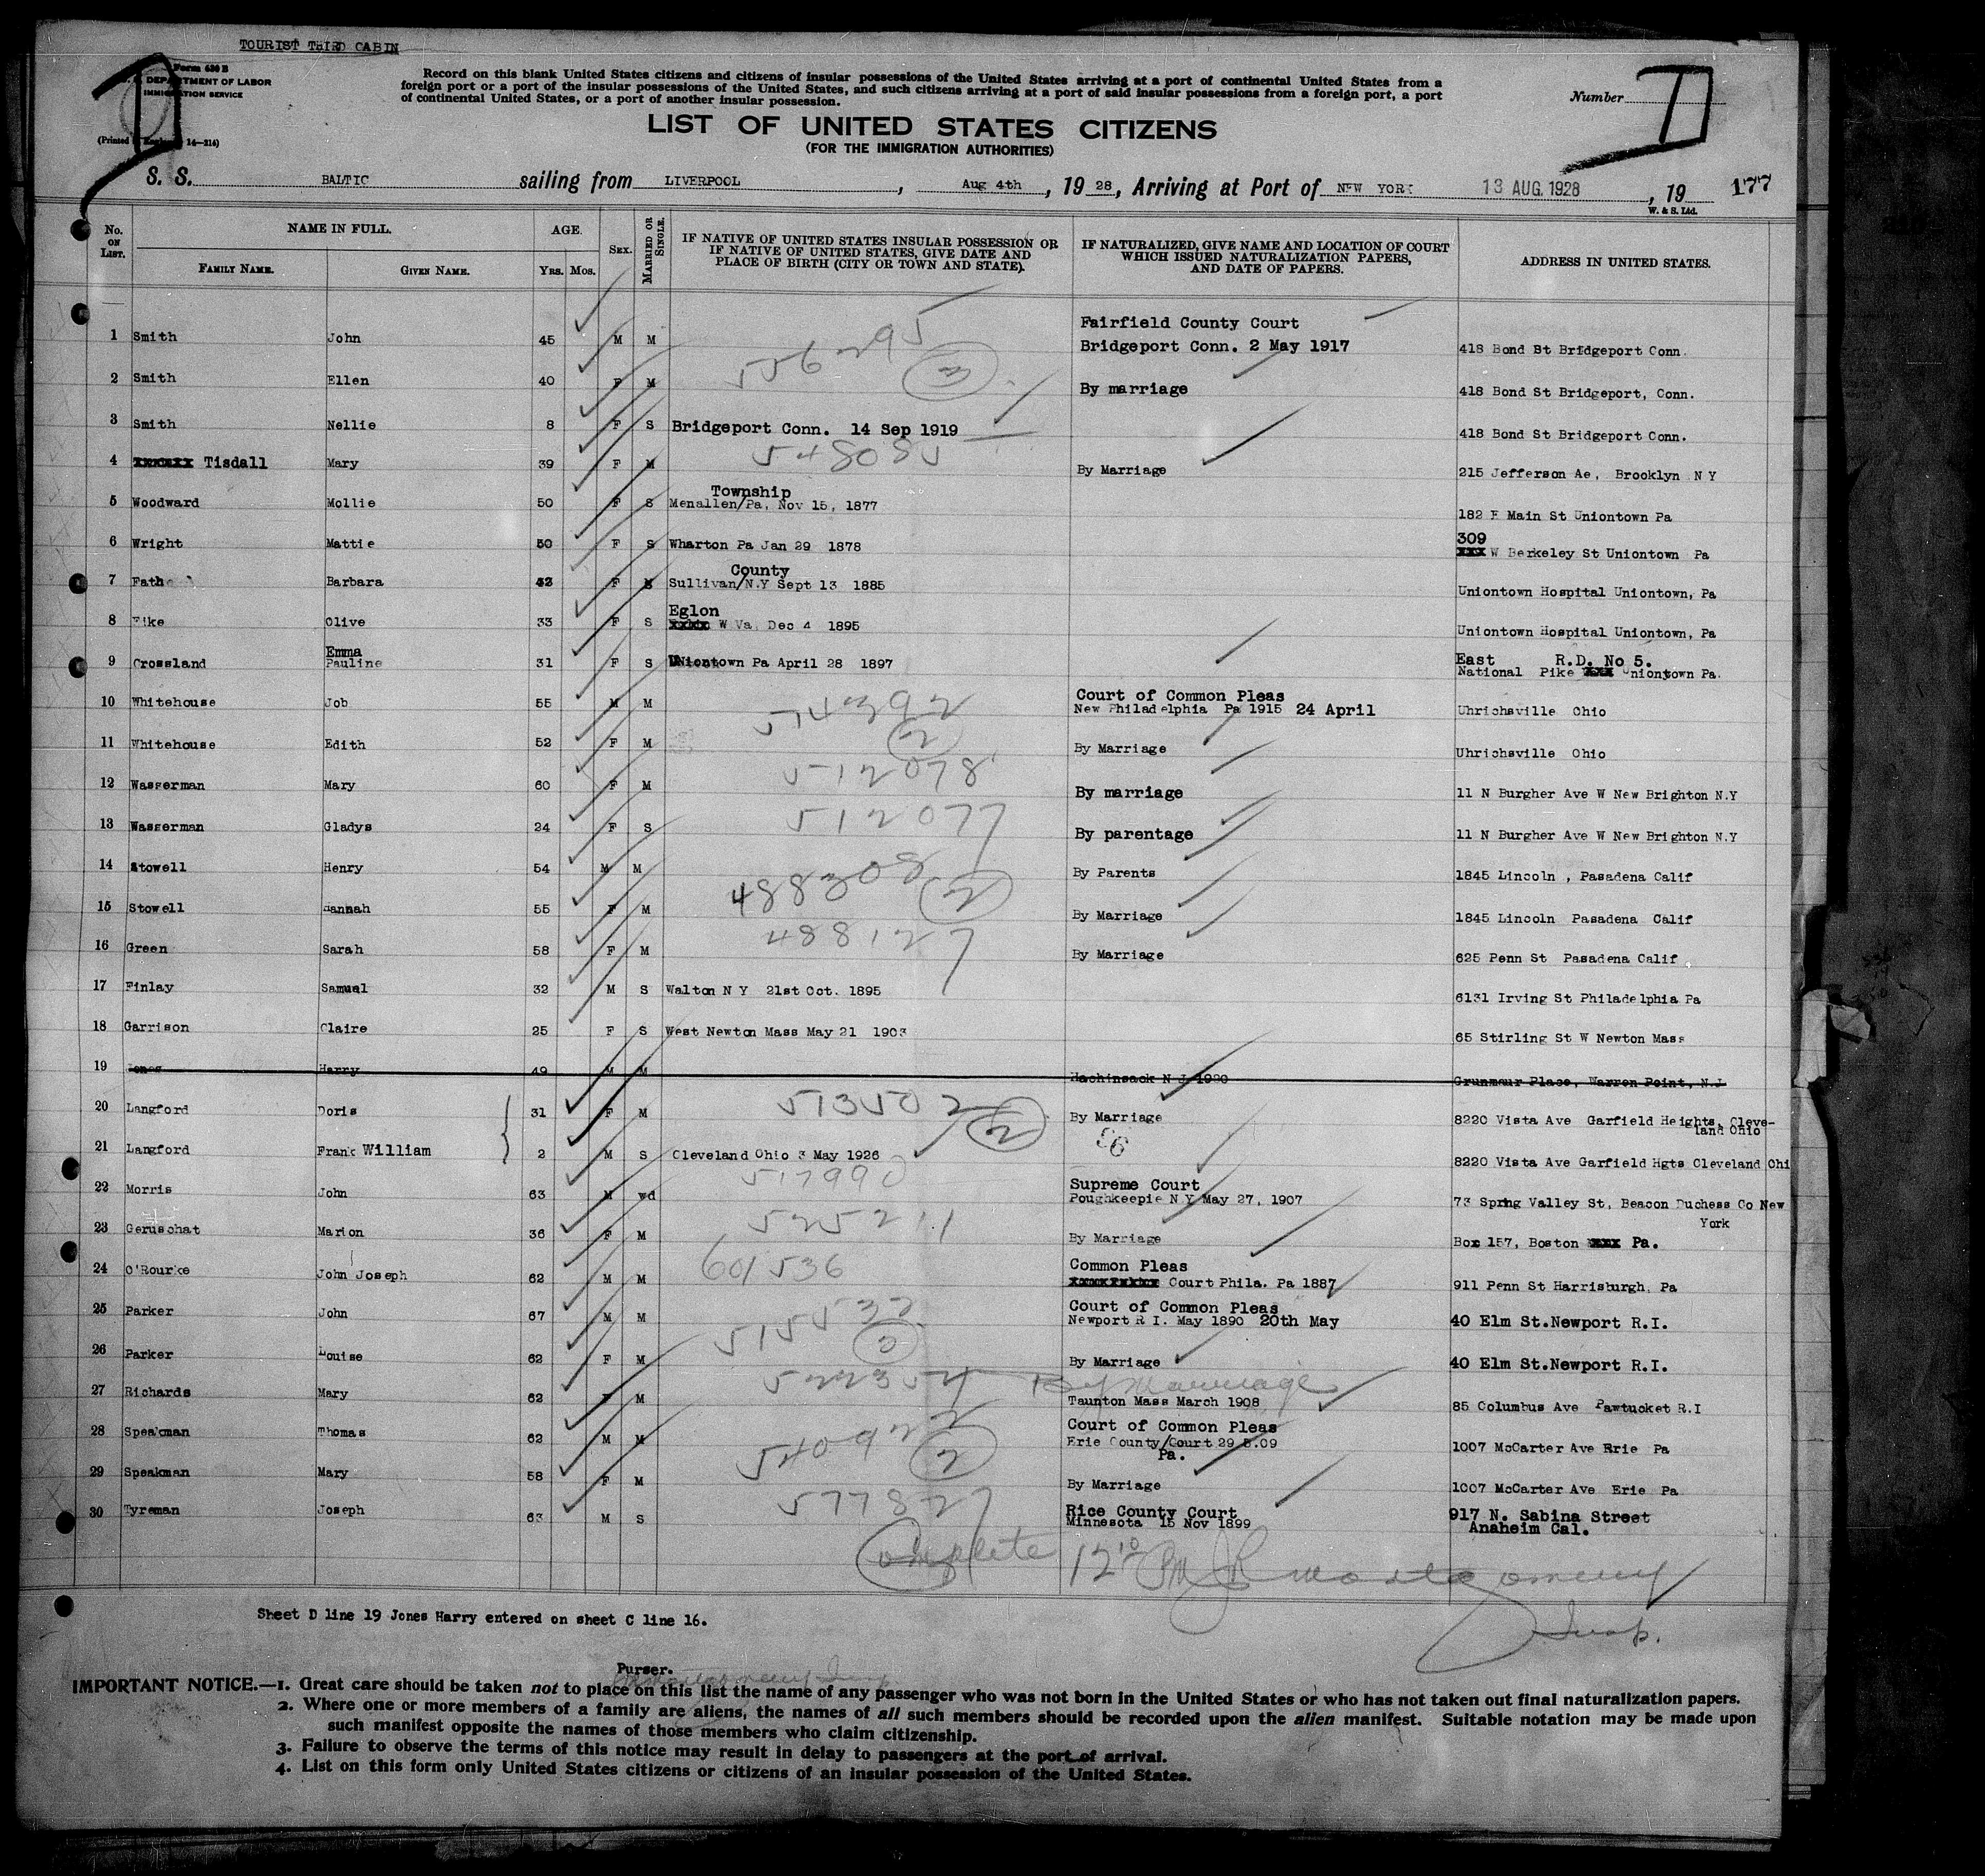 TOURIST THIRD CABIN
Form 630 B
DEPARTMENT OF LABOR
IMMIGRATION SERVICE
(Printed 14—214)
Record on this blank United States citizens and citizens of insular possessions of the United States arriving at a port of continental United States from a
foreign port or a port of the insular possessions of the United States, and such citizens arriving at a port of said insular possessions from a foreign port, a port
of continental United States, or a port of another insular possession.
Number
D
LIST OF UNITED STATES CITIZENS
(FOR THE IMMIGRATION AUTHORITIES)
S. S. BALTIC sailing from LIVERPOOL, Aug 4th, 1928, Arriving at Port of NEW YORK 13 AUG. 1928, 19 177
W. & S. Ltd.
No. ON LIST. NAME IN FULL. FAMILY NAME. GIVEN NAME. AGE. YRS. MOS. SEX. MARRIED OR SINGLE. IF NATIVE OF UNITED STATES INSULAR POSSESSION OR IF NATIVE OF UNITED STATES, GIVE DATE AND PLACE OF BIRTH (CITY OR TOWN AND STATE). IF NATURALIZED, GIVE NAME AND LOCATION OF COURT WHICH ISSUED NATURALIZATION PAPERS, AND DATE OF PAPERS. ADDRESS IN UNITED STATES.
1 Smith John 45 M M 556295 Fairfield County Court Bridgeport Conn. 2 May 1917 418 Bond St Bridgeport Conn.
2 Smith Ellen 40 F M 3 By marriage 418 Bond St Bridgeport, Conn.
3 Smith Nellie 8 F S Bridgeport Conn. 14 Sep 1919 418 Bond St Bridgeport Conn.
4 xxxxxx Tisdall Mary 39 F M 548085 By Marriage 215 Jefferson Ae, Brooklyn N Y
5 Woodward Mollie 50 F S Township Menallen/Pa, Nov 15, 1877 182 E Main St Uniontown Pa
6 Wright Mattie 50 F S Wharton Pa Jan 29 1878 309 xxx W Berkeley St Uniontown Pa
7 Fath Barbara 42 F S County Sullivan/N.Y Sept 13 1885 Uniontown Hospital Uniontown, Pa
8 Fike Olive 33 F S Eglon xxxxx W Va, Dec 4 1895 Uniontown Hospital Uniontown, Pa
9 Crossland Emma Pauline 31 F S Uniontown Pa April 28 1897 East R.D. No 5. National Pike xxx Uniontown Pa.
10 Whitehouse Job 55 M M 514392 Court of Common Pleas New Philadelphia Pa 1915 24 April Uhrichsville Ohio
11 Whitehouse Edith 52 F M 2 By Marriage Uhrichsville Ohio
12 Wasserman Mary 60 F M 512078 By marriage 11 N Burgher Ave W New Brighton N.Y
13 Wasserman Gladys 24 F S 512077 By parentage 11 N Burgher Ave W New Brighton N.Y
14 Stowell Henry 54 M M 488308 By Parents 1845 Lincoln , Pasadena Calif
15 Stowell Hannah 55 F M 2 By Marriage 1845 Lincoln Pasadena Calif
16 Green Sarah 58 F M 488127 By Marriage 625 Penn St Pasadena Calif
17 Finlay Samual 32 M S Walton N Y 21st Oct. 1895 6131 Irving St Philadelphia Pa
18 Garrison Claire 25 F S West Newton Mass May 21 1903 65 Stirling St W Newton Mass
19 Jones Harry 49 M M Hachinsack N J 1920 Grunmour Place, Warren Point, N.J
20 Langford Doris 31 F M 513502 2 By Marriage 8220 Vista Ave Garfield Heights, Cleve-land Ohio
21 Langford Frank William 2 M S Cleveland Ohio 3 May 1926 8220 Vista Ave Garfield Hgts Cleveland Ohi
22 Morris John 63 M wd 517990 Supreme Court Poughkeepie N.Y May 27, 1907 73 Spring Valley St, Beacon Duchess Co New York
23 Geruschat Marion 36 F M 525211 By Marriage Box 157, Boston xxxx Pa.
24 O'Rourke John Joseph 62 M M 601536 Common Pleas Court Phila. Pa 1887 911 Penn St Harrisburgh, Pa
25 Parker John 67 M M 515532 Court of Common Pleas Newport R I. May 1890 20th May 40 Elm St.Newport R.I.
26 Parker Louise 62 F M 2 By Marriage 40 Elm St.Newport R.I.
27 Richards Mary 62 F M 522354 By Marriage Taunton Mass March 1908 85 Columbus Ave Pawtucket R.I
28 Speakman Thomas 62 M M 540922 Court of Common Pleas Erie County/Court 29 5.09 Pa. 1007 McCarter Ave Erie Pa
29 Speakman Mary 58 F M 2 By Marriage 1007 McCarter Ave Erie Pa
30 Tyreman Joseph 63 M S 577827 Rice County Court Minnesota 15 Nov 1899 917 N. Sabina Street Anaheim Cal.
Complete 12 10 PM J R Montgomery
Insp.
Sheet D line 19 Jones Harry entered on sheet C line 16.
Purser.
IMPORTANT NOTICE.—1. Great care should be taken not to place on this list the name of any passenger who was not born in the United States or who has not taken out final naturalization papers.
2. Where one or more members of a family are aliens, the names of all such members should be recorded upon the alien manifest. Suitable notation may be made upon
such manifest opposite the names of those members who claim citizenship.
3. Failure to observe the terms of this notice may result in delay to passengers at the port of arrival.
4. List on this form only United States citizens or citizens of an insular possession of the United States.